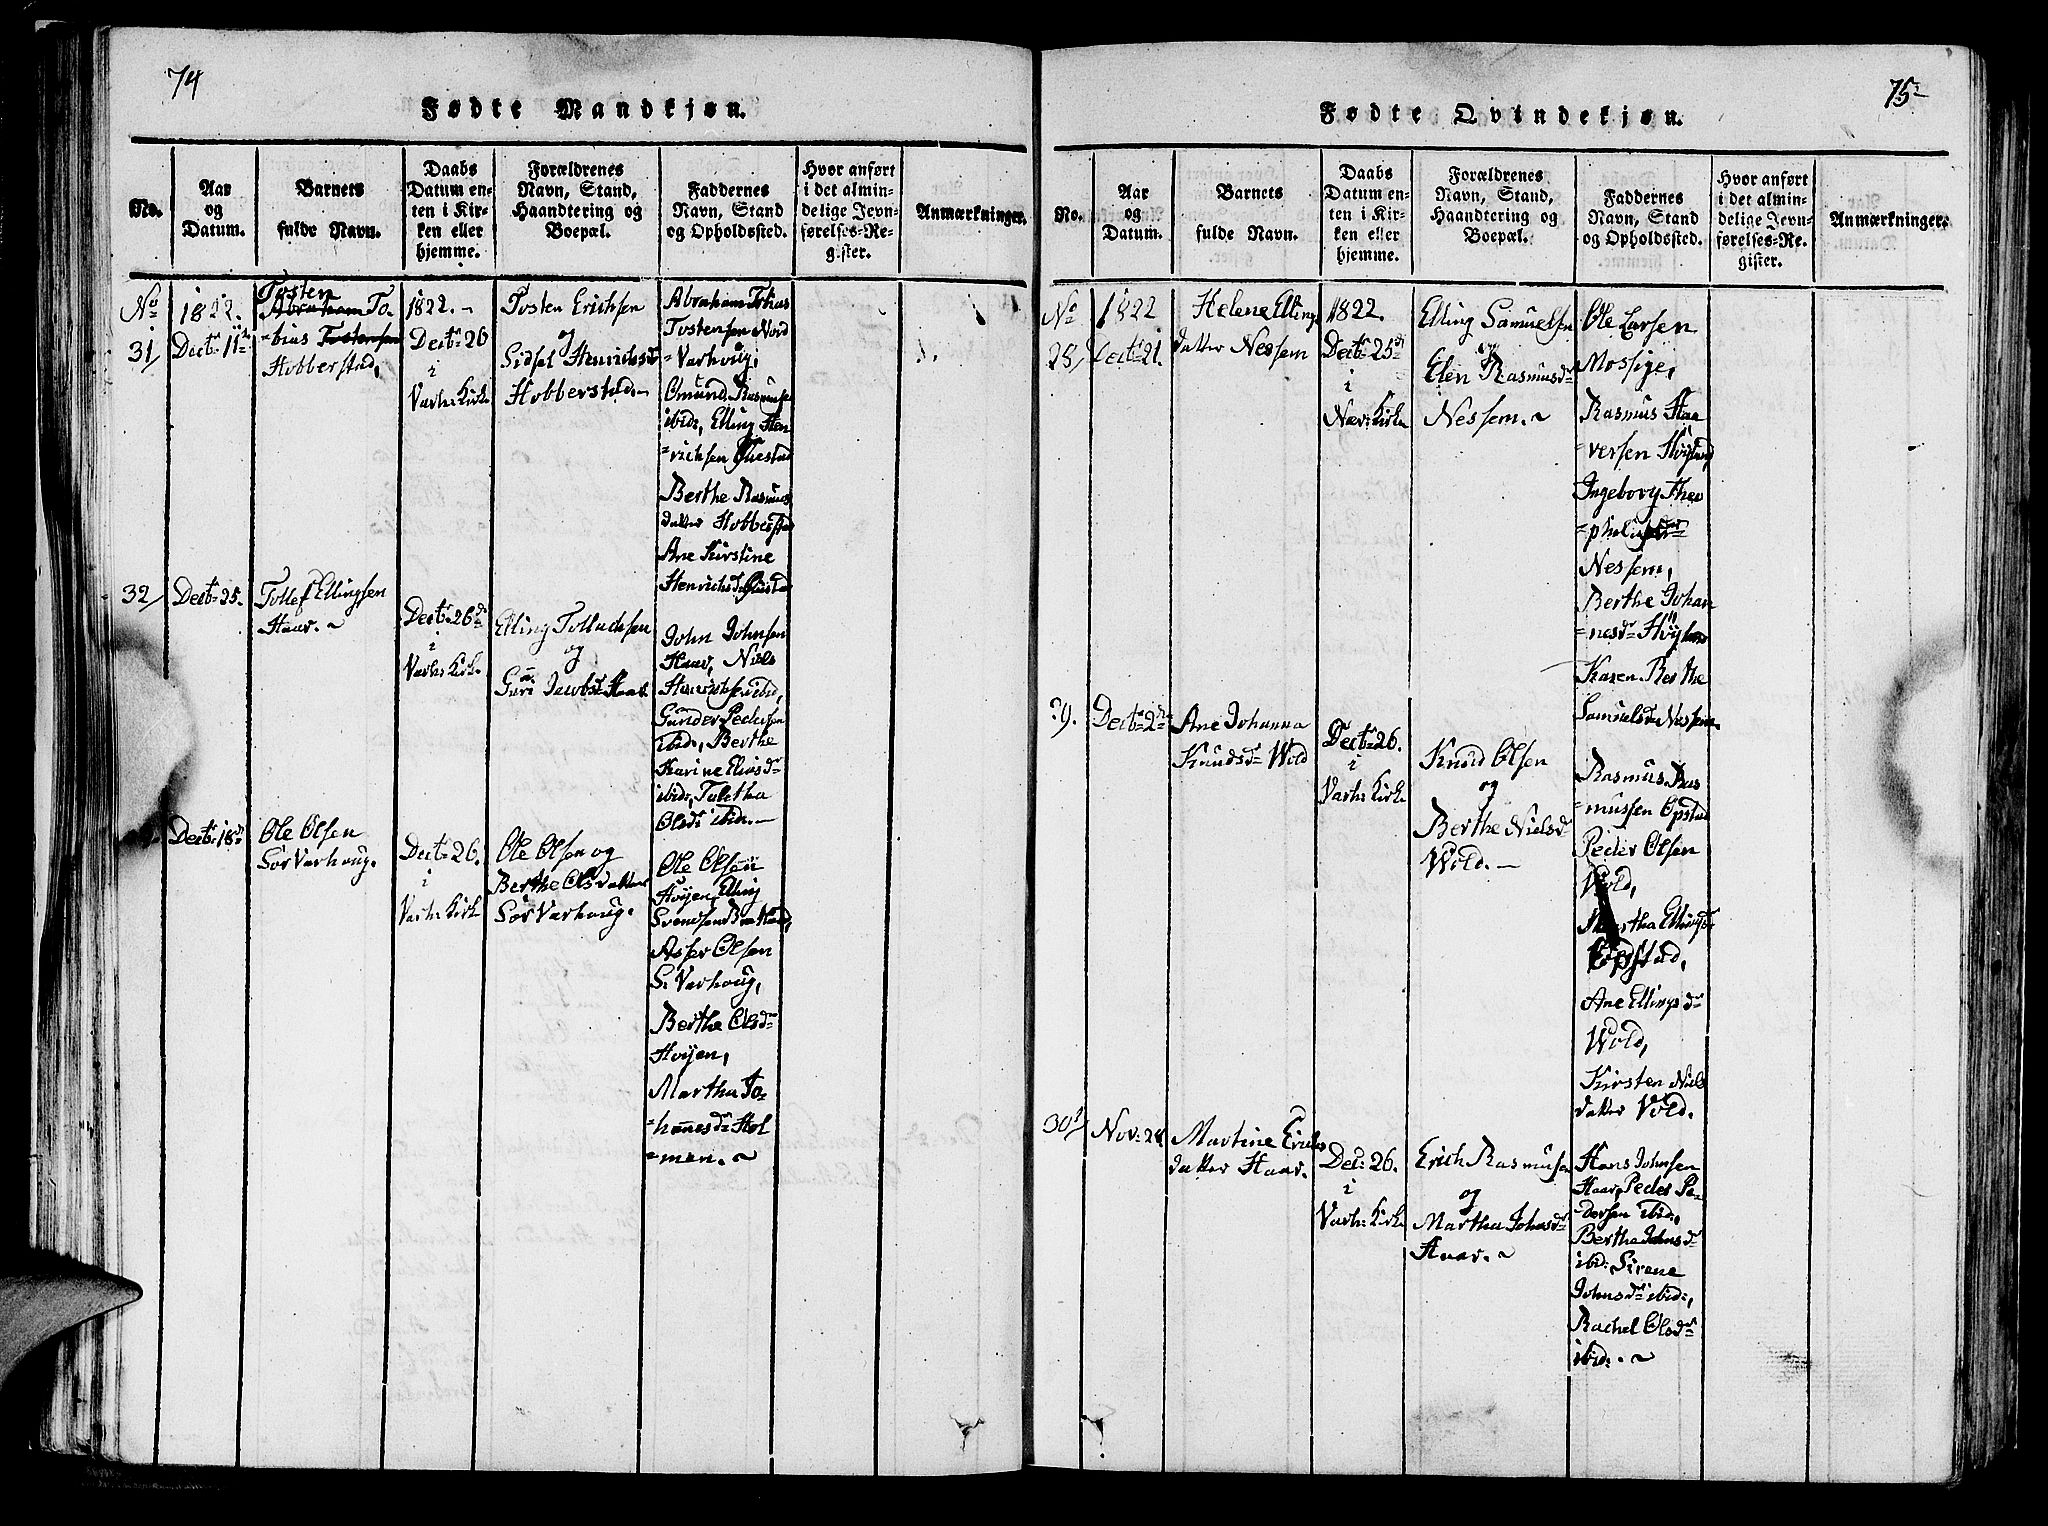 74
Fødte Mandkjøn.
No.
Aar
og
Datum.
Barnets
fulde Navn.
Daabs
Datum en-
ten i Kir-
ken eller
hjemme.
Forældrenes
Navn, Stand,
Haandtering og
Boepæl.
Faddernes
Navn, Stand
og Opholdssted.
Hvor anført
i det almin-
delige Jevn-
førelses-Re-
gister.
Anmærkninger.
No
31
1822.
Decbr 11te
Tosten
Abraham To-
=bias Tostensen
Hobberstad,
1822.-
Decbr 26
i
Varh: Kirke
Tosten Erichsen
og
Sidsel Henrichsdr
Hobberstad.-
Abraham Tobias
Tostensen Nord
=Varhoug,
Omund Rasmusen
ibid:, Elling Hen
=richsen
Berthe Rasmus
datter Hobberstad
Ane Kirstine
Henrichsdr
32
Decbr 25.
Tollef Ellingsen
Haar. ~
Decbr 26de
i
Varh: Kirk.
Elling Tollachsen
og
Guri Jacobsdr Haar
John Johnsen
Haar, Niels
ibid,
Gunder Pedersen
ibid:, Berthe
Karine Eliasdr
ibid:, Taletha
Olsdr ibid:.—
Decbr 18de
Ole Olsen
Sør Varhoug.
Decbr 26.
i
Varh: Kirk
Ole Olsen og
Berthe Olsdatter
Sør Varhoug.
Ole Olsen
Høyen, Elling
Svendsen
Asser Olsen
S. Varhoug,
Berthe Olsdr
Høyen,
Martha Jo-
=hannesdr Hol
=men. ~
75
Fødte Qvindekjøn.
No.
Aar
og
Datum.
Barnets
fulde Navn.
Daabs
Datum en-
ten i Kir-
ken eller
hjemme.
Forældrenes
Navn, Stand,
Haandtering og
Boepæl.
Faddernes
Navn, Stand
og Opholdssted.
Hvor anført
i det almin-
delige Jevn-
førelses-Re-
gister.
Anmærkninger.
No
28
1822
Decbr 21.
Helene Ellings
datter Nessem
1822.
Decbr 25de
i
Nær: Kirke
Elling Samuelsen
og
Elen Rasmusdr
Nessem. ~
Ole Larsen
Mossige,
Rasmus Haa
=versen Høyland
Ingeborg Theo
=philusdr
Nessem,
Berthe Johan
=nesdr Høyland
Karen Berthe
Samuelsdr Nessem.
29.
Decbr 2den
Ane Johanna
Knudsdr Wold
Decbr 26.
i
Varh: Kirke
Knud Olsen
og
Berthe Nielsdr
Wold.—
Rasmus Ras
=mussen Opstad
Peder Olsen
Wold,
Martha Ellingsdr
Opstad,
Ane Ellingsdr
Wold,
Kirsten Niels
datter Vold.
30
Nov: 28
Martine Erichs
datter Haar.
Dec: 26.
i
Varh: Kirke
Erich Rasmusen
og
Martha Johnsdr
Haar. ~
Hans Johnsen
Haar, Peder Pe-
dersen ibid:,
Berthe Johnsdr
ibid: Sirene
Johnsdr ibid:,
Rachel Olsdr
ibid:. ~